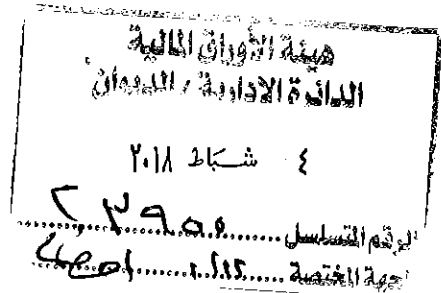 هيئة الأوراق المالية
الدائرة الادارية / الديوان
٤ شباط ٢٠١٨
الرقم المتسلسل
الجهة المختصة